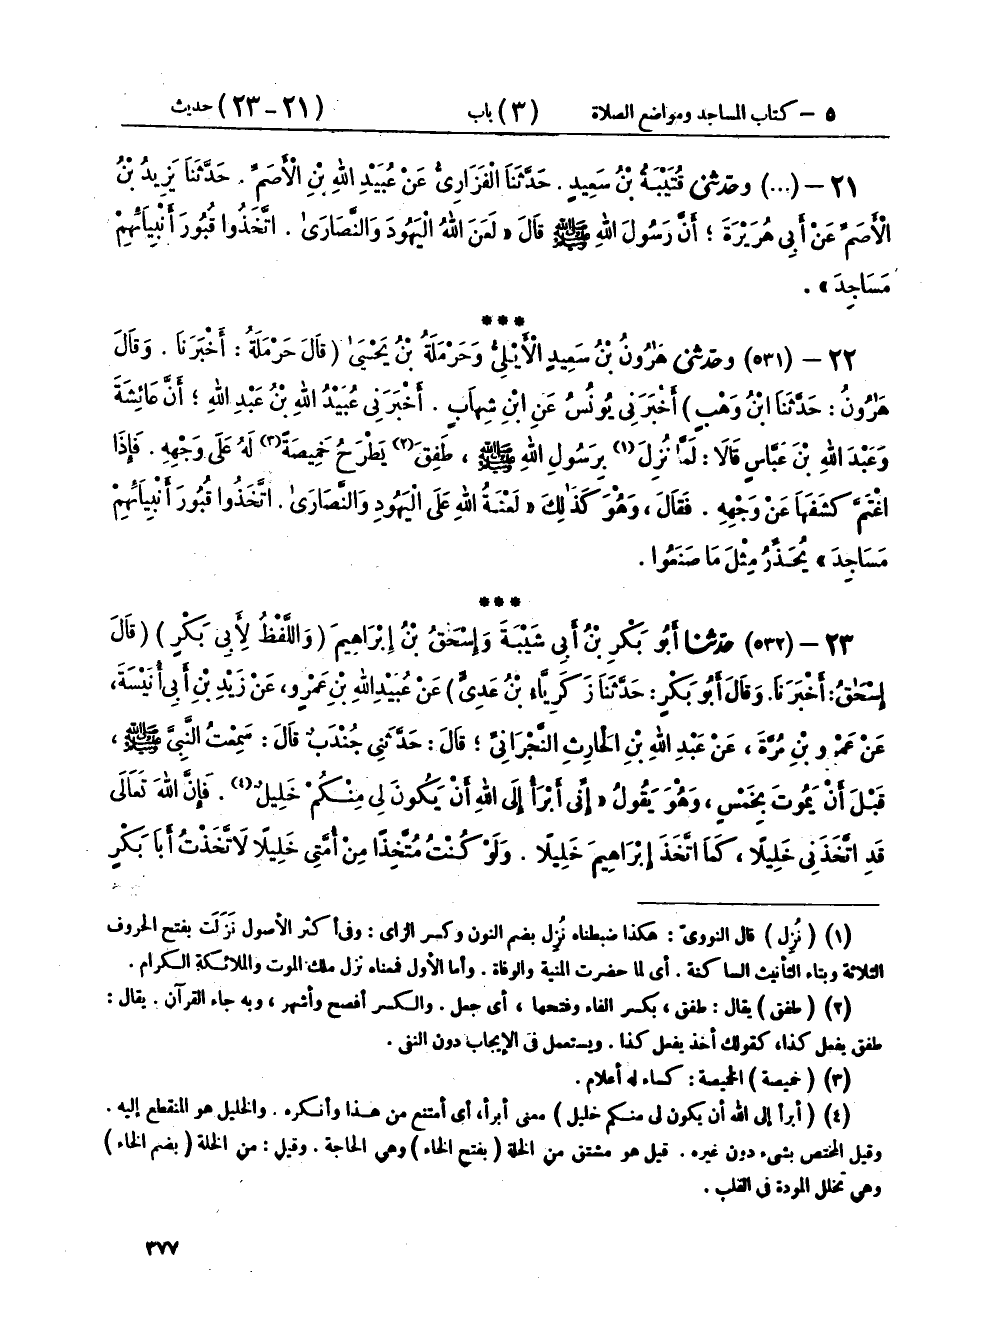 ٥ – كتاب المساجد ومواضع الصلاة (٣) باب (٢١-٢٣) حديث
٢١ – (...) وحَدَّثَنِي قُتَيْبَةُ بْنُ سَعِيدٍ . حَدَّثَنَا الْفَزَارِيُّ عَنْ عُبَيْدِ اللهِ بْنِ الْأَصَمِّ . حَدَّثَنَا يَزِيدُ بْنُ
الْأَصَمِّ عَنْ أَبِي هُرَيْرَةَ ؛ أَنَّ رَسُولَ اللهِ ﷺ قَالَ « لَعَنَ اللهُ الْيَهُودَ وَالنَّصَارَىٰ . اتَّخَذُوا قُبُورَ أَنْبِيَائِهِمْ
مَسَاجِدَ » .
***
٢٢ – (٥٣١) وحَدَّثَنِي هَٰرُونُ بْنُ سَعِيدٍ الْأَيْلِيُّ وَحَرْمَلَةُ بْنُ يَحْيَىٰ ( قَالَ حَرْمَلَةُ : أَخْبَرَنَا . وَقَالَ
هَٰرُونُ : حَدَّثَنَا ابْنُ وَهْبٍ ) أَخْبَرَنِي يُونُسُ عَنِ ابْنِ شِهَابٍ . أَخْبَرَنِي عُبَيْدُ اللهِ بْنُ عَبْدِ اللهِ ؛ أَنَّ عَائِشَةَ
وَعَبْدَ اللهِ بْنَ عَبَّاسٍ قَالَا : لَمَّا نُزِلَ (١) بِرَسُولِ اللهِ ﷺ ، طَفِقَ (٢) يَطْرَحُ خَمِيصَةً (٣) لَهُ عَلَى وَجْهِهِ . فَإِذَا
اغْتَمَّ كَشَفَهَا عَنْ وَجْهِهِ . فَقَالَ ، وَهُوَ كَذَٰلِكَ « لَعْنَةُ اللهِ عَلَى الْيَهُودِ وَالنَّصَارَىٰ . اتَّخَذُوا قُبُورَ أَنْبِيَائِهِمْ
مَسَاجِدَ » يُحَذِّرُ مِثْلَ مَا صَنَعُوا .
***
٢٣ – (٥٣٢) حَدَّثَنَا أَبُو بَكْرِ بْنُ أَبِي شَيْبَةَ وَإِسْحَٰقُ بْنُ إِبْرَاهِيمَ ( وَاللَّفْظُ لِأَبِي بَكْرٍ ) ( قَالَ
إِسْحَٰقُ : أَخْبَرَنَا . وَقَالَ أَبُو بَكْرٍ : حَدَّثَنَا زَكَرِيَّاءُ بْنُ عَدِيٍّ ) عَنْ عُبَيْدِ اللهِ بْنِ عَمْرٍو ، عَنْ زَيْدِ بْنِ أَبِي أُنَيْسَةَ ،
عَنْ عَمْرِو بْنِ مُرَّةَ ، عَنْ عَبْدِ اللهِ بْنِ الْحَارِثِ النَّجْرَانِيِّ ؛ قَالَ : حَدَّثَنِي جُنْدَبٌ قَالَ : سَمِعْتُ النَّبِيَّ ﷺ ،
قَبْلَ أَنْ يَمُوتَ بِخَمْسٍ ، وَهُوَ يَقُولُ « إِنِّي أَبْرَأُ إِلَى اللهِ أَنْ يَكُونَ لِي مِنْكُمْ خَلِيلٌ (٤) . فَإِنَّ اللهَ تَعَالَى
قَدِ اتَّخَذَنِي خَلِيلًا ، كَمَا اتَّخَذَ إِبْرَاهِيمَ خَلِيلًا . وَلَوْ كُنْتُ مُتَّخِذًا مِنْ أُمَّتِي خَلِيلًا لَاتَّخَذْتُ أَبَا بَكْرٍ
(١) ( نُزِل ) قال النوويّ : هكذا ضبطناه نُزِل بضم النون وكسر الزاى : وفى أكثر الأصول نَزَلَت بفتح الحروف
الثلاثة وبتاء التأنيث الساكنة . أى لما حضرت المنية والوفاة . وأما الأول فمعناه نزل ملك الموت والملائكة الكرام .
(٢) ( طفق ) يقال : طفق ، بكسر الفاء وفتحها ، أى جعل . والكسر أفصح وأشهر ، وبه جاء القرآن . يقال :
طفق يفعل كذا، كقولك أخذ يفعل كذا . ويستعمل فى الإيجاب دون النفى .
(٣) ( خميصة ) الخميصة : كساء له أعلام .
(٤) ( أبرأ إلى الله أن يكون لى منكم خليل ) معنى أبرأ، أى أمتنع من هذا وأنكره . والخليل هو المنقطع إليه .
وقيل المختص بشىء دون غيره . قيل هو مشتق من الخلة ( بفتح الخاء ) وهي الحاجة . وقيل : من الخلة ( بضم الخاء )
وهي تخلل المودة فى القلب .
٣٧٧